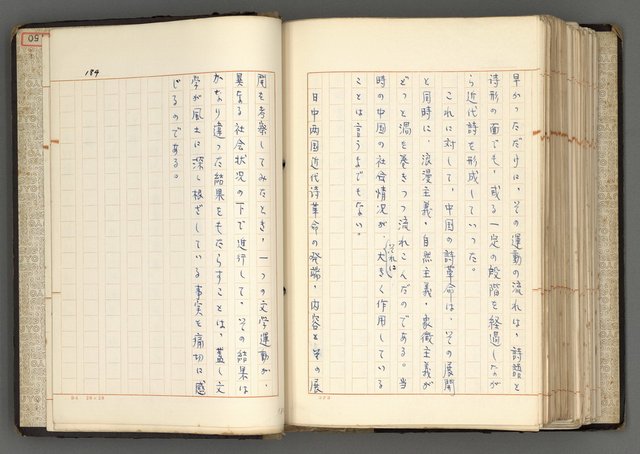 早かっただけに、その運動の流れは、詩語と
詩形の面でも、或る一定の段階を経過しながが
ら近代詩を形成していった。
これに対して、中国の詩革命は、その展開
と同時に、浪漫主義・自然主義・象徴主義が
どっと渦を巻きつつ流れこんだのである。当
時の中国の社会情況が、それに大きく作用している
ことは言うまでもない。
日中両国近代詩革命の発端・内容と其の展
184
開を考察してみたとき、一つの文学運動が、
異なる社会状況の下で進行して、その結果は
かなり違った結果をもたらすことは、蓋し文
学が風土に深く根ざしている事実を痛切に感
じるのである。
50